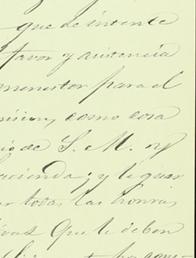 que de intente
favor y asistencia
menester para el
como cosa
io de S. M. y
acienda; y le guar
todas las honras,
ivas que le deben